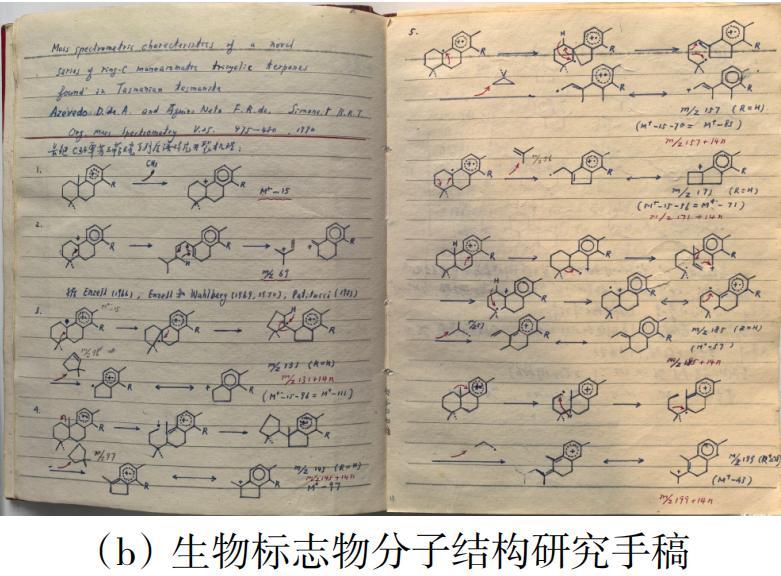 Mass spectrometric characteristics of a novel
series of ring-C monoaromatic tricyclic terpanes
found in Tasmanian tasmanite
Azevedo D. da A. and Aquino Neto F. R. da, Simoneit B.R.T
Org. mass Spectrometry V.25. 475-480, 1990
1.
CH₃
R
R
M⁺-15
2.
R
R
R
m/z 69
Enzell (1966), Enzell Wahlberg (1969, 1970),
3.
M⁺-15
R
R
R
R
R
m/z 131 (R=H)
m/z 131+14n
(M⁺-15-96 = M⁺-111)
4.
R
R
R
m/z 97
R
R
m/z 145 (R=H)
m/z 145+14n
M⁺-97
5.
R
R
R
R
R
m/z 157 (R=H)
(M⁺-15-70 = M⁺-85)
m/z 157+14n
R
m/z 56
R
R
m/z 171 (R=H)
(M⁺-15-56 = M⁺-71)
m/z 171+14n
H
R
R
R
R
R
R
R
R
m/z 185 (R=H)
(M⁺-57)
m/z 185+14n
R
R
R
R
R
(M⁺-43)
m/z 199+14n
(b) 生物标志物分子结构研究手稿